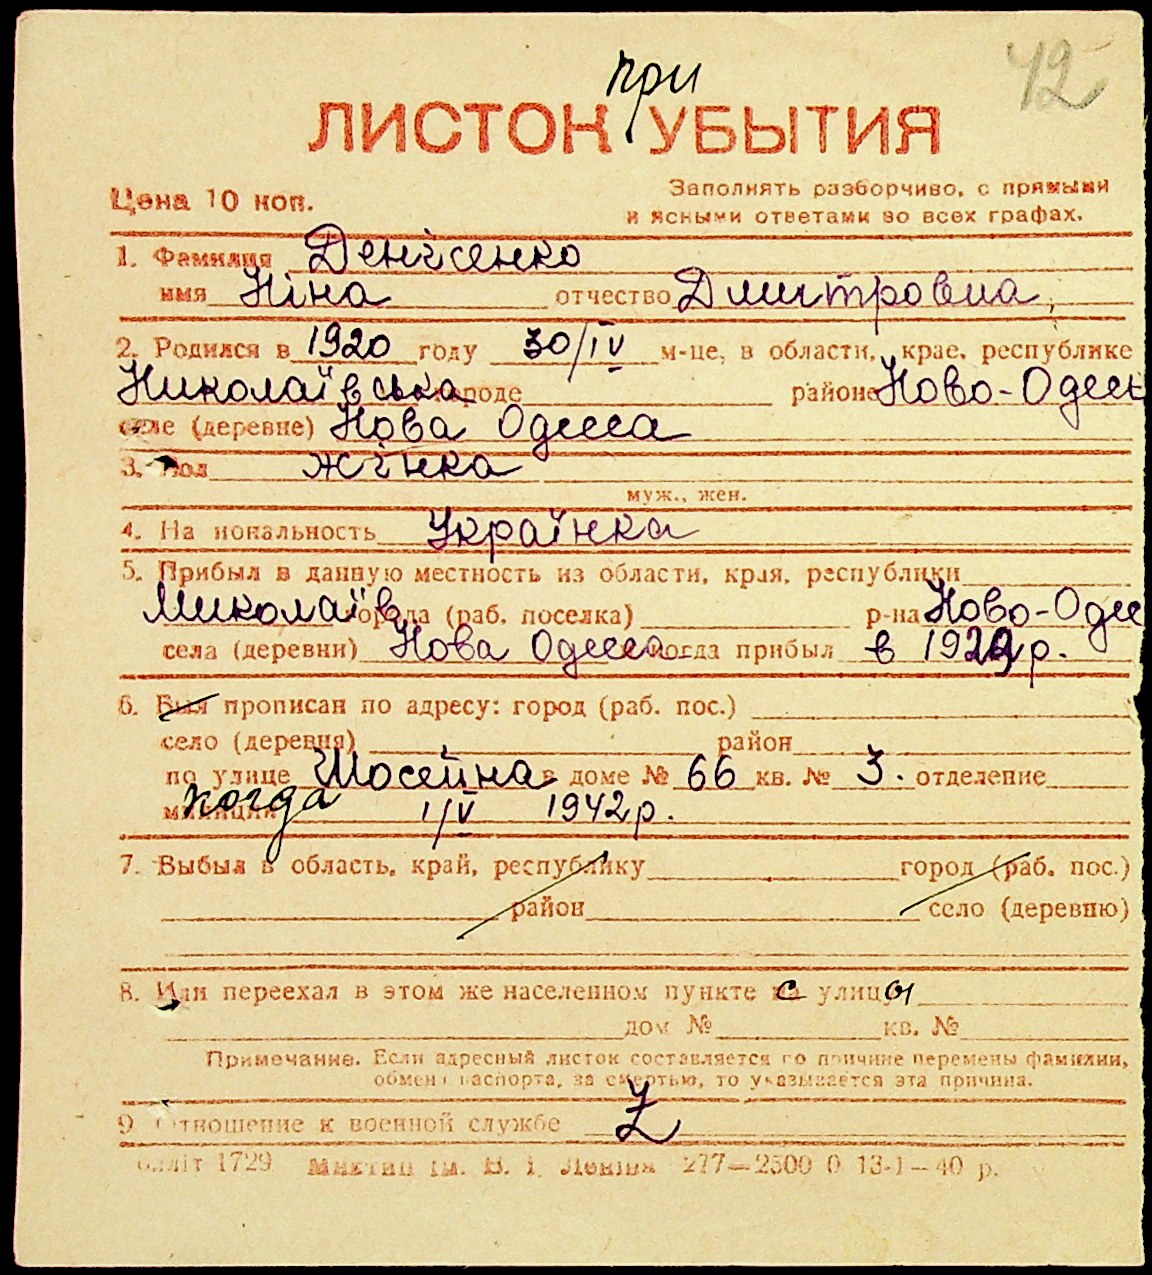 при
42
ЛИСТОК УБЫТИЯ
Цена 10 коп.
Заполнять разборчиво, с прямыми
и ясными ответами во всех графах.
1. Фамилия Денисенко
имя Ніна отчество Дмитровна
2. Родился в 1920 году 30/IV м-це, в области, крае, республике
Николаївська городе районе Ново-Одесь
селе (деревне) Нова Одесса
3. Пол жінка
муж., жен.
4. На иональность Українка
5. Прибыл в данную местность из области, края, республики
Миколаїв города (раб. поселка) р-на Ново-Оде
села (деревни) Нова Одесса когда прибыл в р.
6. Был прописан по адресу: город (раб. пос.)
село (деревня) район
по улице в доме № 66 кв. № 3. отделение
милиции когда 1/V 1942 р.
7. Выбыл в область, край, республику город (раб. пос.)
район село (деревню)
8. Или переехал в этом же населенном пункте с улицы
дом № кв. №
Примечание. Если адресный листок составляется по причине перемены фамилии,
обмена паспорта, за смертью, то указывается эта причина.
9. Отношение к военной службе Z
1729 ім. В. І. Леніна 277—2500 0 13-I—40 р.